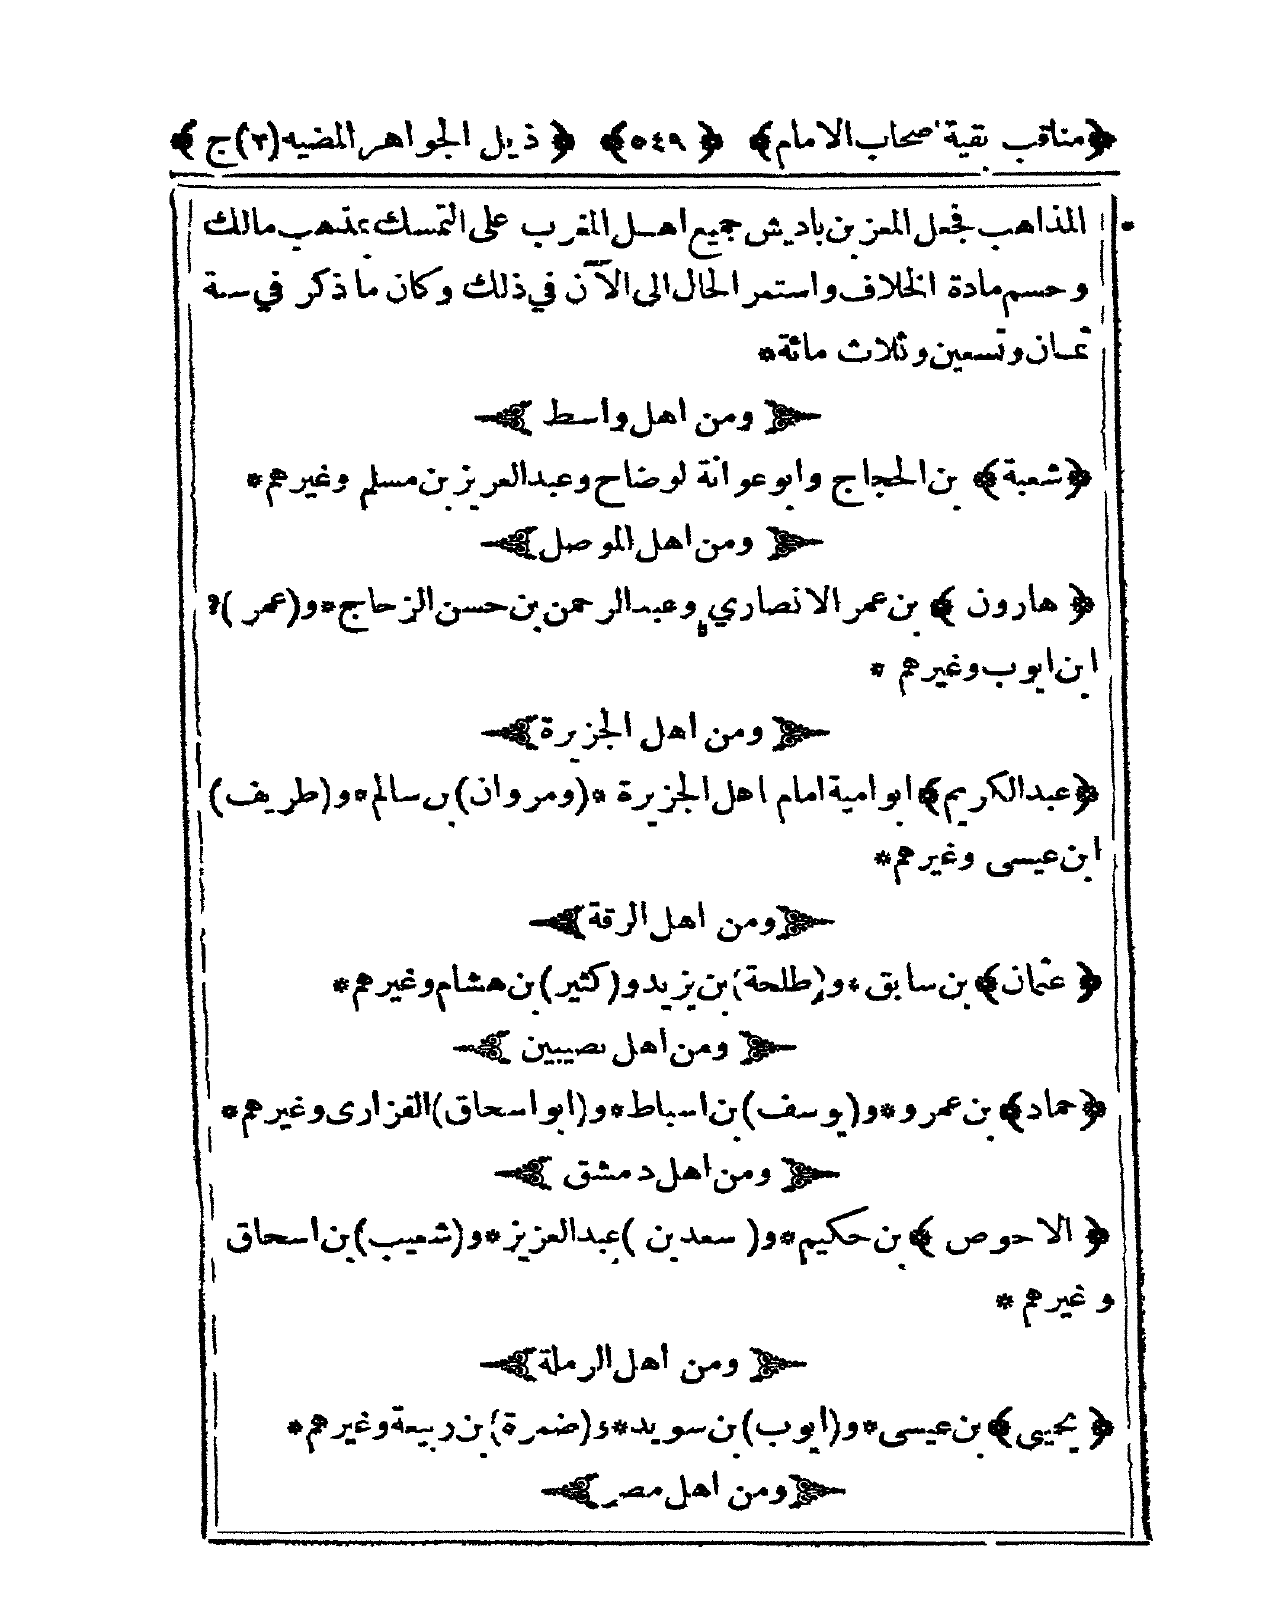 ﴿مناقب بقية اصحاب الامام﴾ ﴿٥٤٩﴾ ﴿ذيل الجواهر المضيه(٢)ج﴾
المذاهب فجعل المعز بن باديش جميع اهل المغرب على التمسك بمذهب مالك
و حسم مادة الخلاف واستمر الحال الى الآن في ذلك وكان ما ذكر في سنة
ثمان وتسعين وثلاث مائة*
﴿ومن اهل واسط﴾
﴿شعبة﴾ بن الحجاج وابو عوانة لوضاح وعبدالعزيز بن مسلم وغيرهم*
﴿ومن اهل الموصل﴾
﴿هارون﴾ بن عمر الانصاري وعبدالرحمن بن حسن الزجاج*و(عمر)؟
ابن ايوب وغيرهم *
﴿ومن اهل الجزيرة﴾
﴿عبدالكريم﴾ ابو امية امام اهل الجزيرة *(ومروان)بن سالم*و(طريف)
ابن عيسى وغيرهم*
﴿ومن اهل الرقة﴾
﴿عثمان﴾ بن سابق*و(طلحة)بن يزيد و(كثير)بن هشام وغيرهم*
﴿ومن اهل نصيبين﴾
﴿حماد﴾ بن عمرو*و(يوسف)بن اسباط*و(ابو اسحاق)الفزارى وغيرهم*
﴿ومن اهل دمشق﴾
﴿الاحوص﴾ بن حكيم*و( سعد بن )عبدالعزيز*و(شعيب)بن اسحاق
و غيرهم *
﴿ومن اهل الرملة﴾
﴿يحيى﴾ بن عيسى*و(ايوب)بن سويد*و(ضمرة)بن ربيعة وغيرهم*
﴿ومن اهل مصر﴾